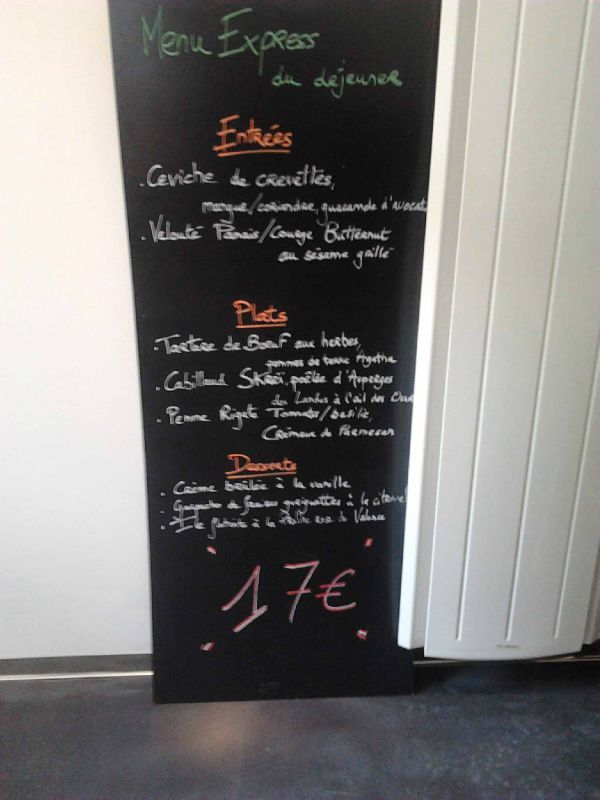 Menu Express
du déjeuner
Entrées
. Ceviche de crevettes,
mangue/coriandre, guacamole d'avocat
. Velouté Panais/Courge Butternut
au sésame grillé
Plats
. Tartare de Boeuf aux herbes,
pommes de terre Agatha
. Cabillaud Skreï, poêlée d'Asperges
des Landes à l'ail des Ours
. Penne Rigate Tomate/basilic,
Crémeux de Parmesan
Desserts
. Crème brûlée à la vanille
. de fraises gariguettes à la
. Ile flottante à la Praline rose de Valence
17€